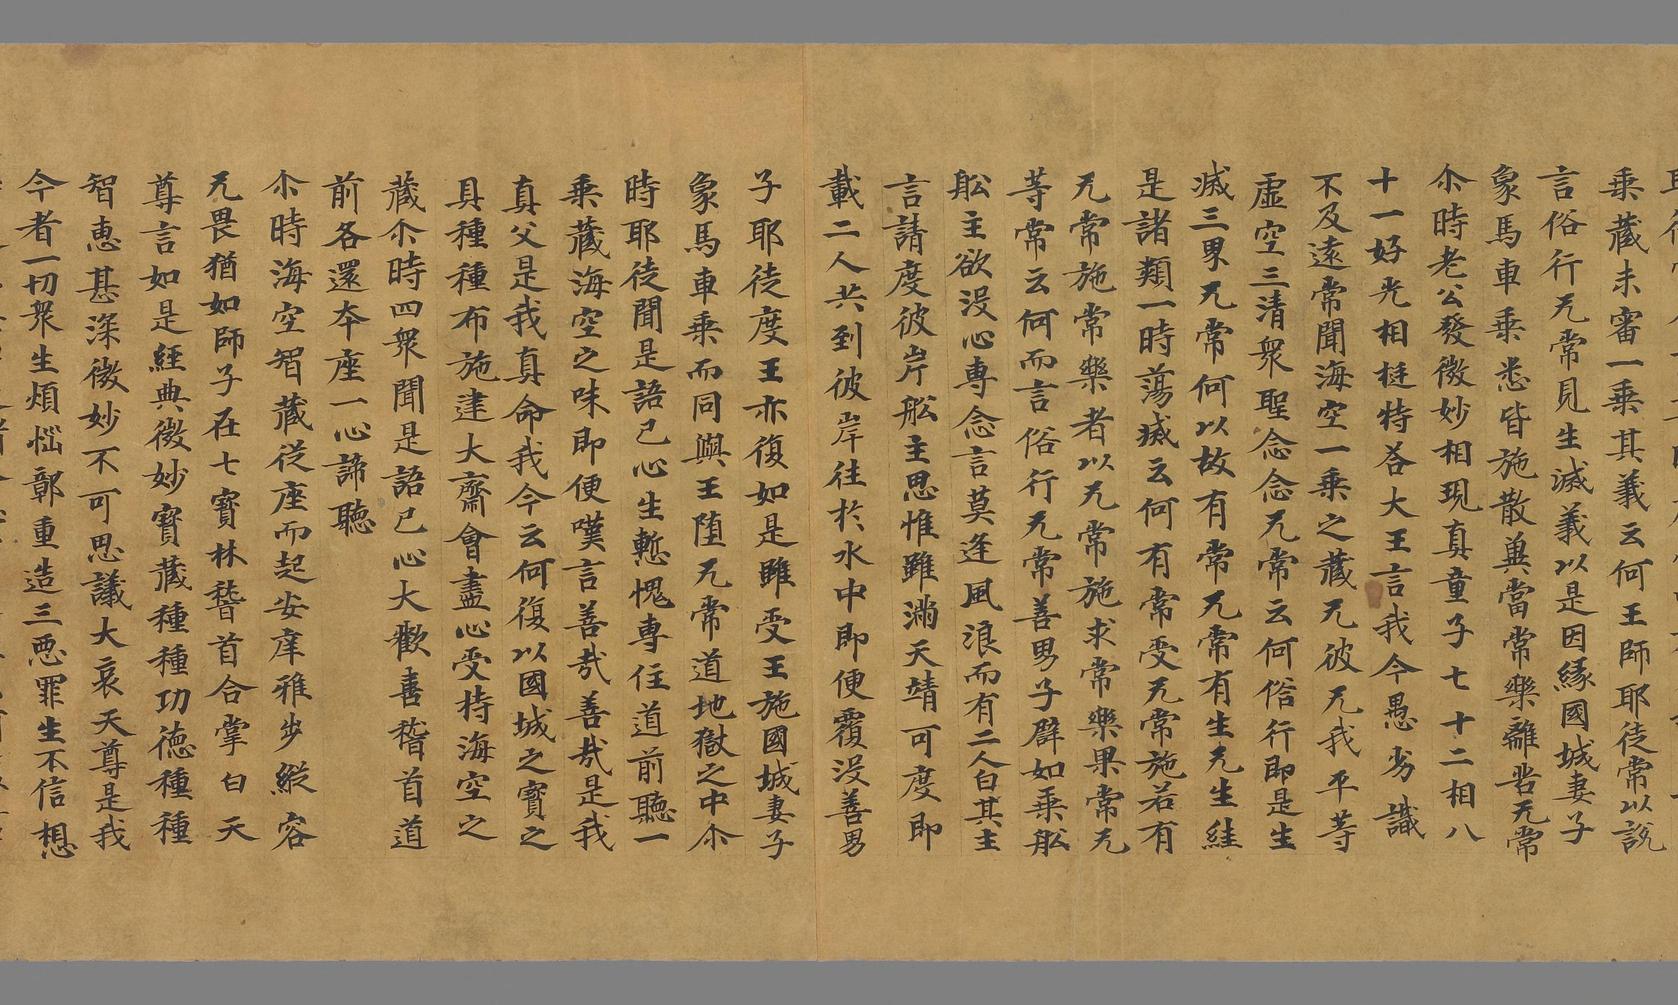 乘藏未審一乘其義云何王師耶徒常以說
言俗行无常見生滅義以是因緣國城妻子
象馬車乘悉皆施散與當常樂離苦无常
尒時老公發微妙相現真童子七十二相八
十一好光相挺特荅大王言我今愚劣識
不及遠常聞海空一乘之藏无彼无我平等
虛空三清衆聖念念无常云何俗行即是生
滅三界无常何以故有常无常有生无生絓
是諸類一時蕩滅云何有常受无常施若有
无常施常樂者以无常施求常樂果常无
等常云何而言俗行无常善男子辟如乘舩
舩主欲没心專念言莫逢風浪而有二人白其主
言請度彼岸舩主思惟雖滿天靖可度即
載二人共到彼岸往於水中即便覆没善男
子耶徒度王亦復如是雖受王施國城妻子
象馬車乘而同與王墮无常道地獄之中尒
時耶徒聞是語已心生慙愧專住道前聽一
乘藏海空之味即便嘆言善哉善哉是我
真父是我真命我今云何復以國城之寶之
具種種布施建大齋會盡心受持海空之
藏尒時四衆聞是語已心大歡喜稽首道
前各還本座一心諦聽
尒時海空智藏從座而起安庠雅步縱容
无畏猶如師子在七寶林稽首合掌白天
尊言如是經典微妙寶藏種種功德種種
智惠甚深微妙不可思議大哀天尊是我
今者一切衆生煩惱鄣重造三惡罪生不信想